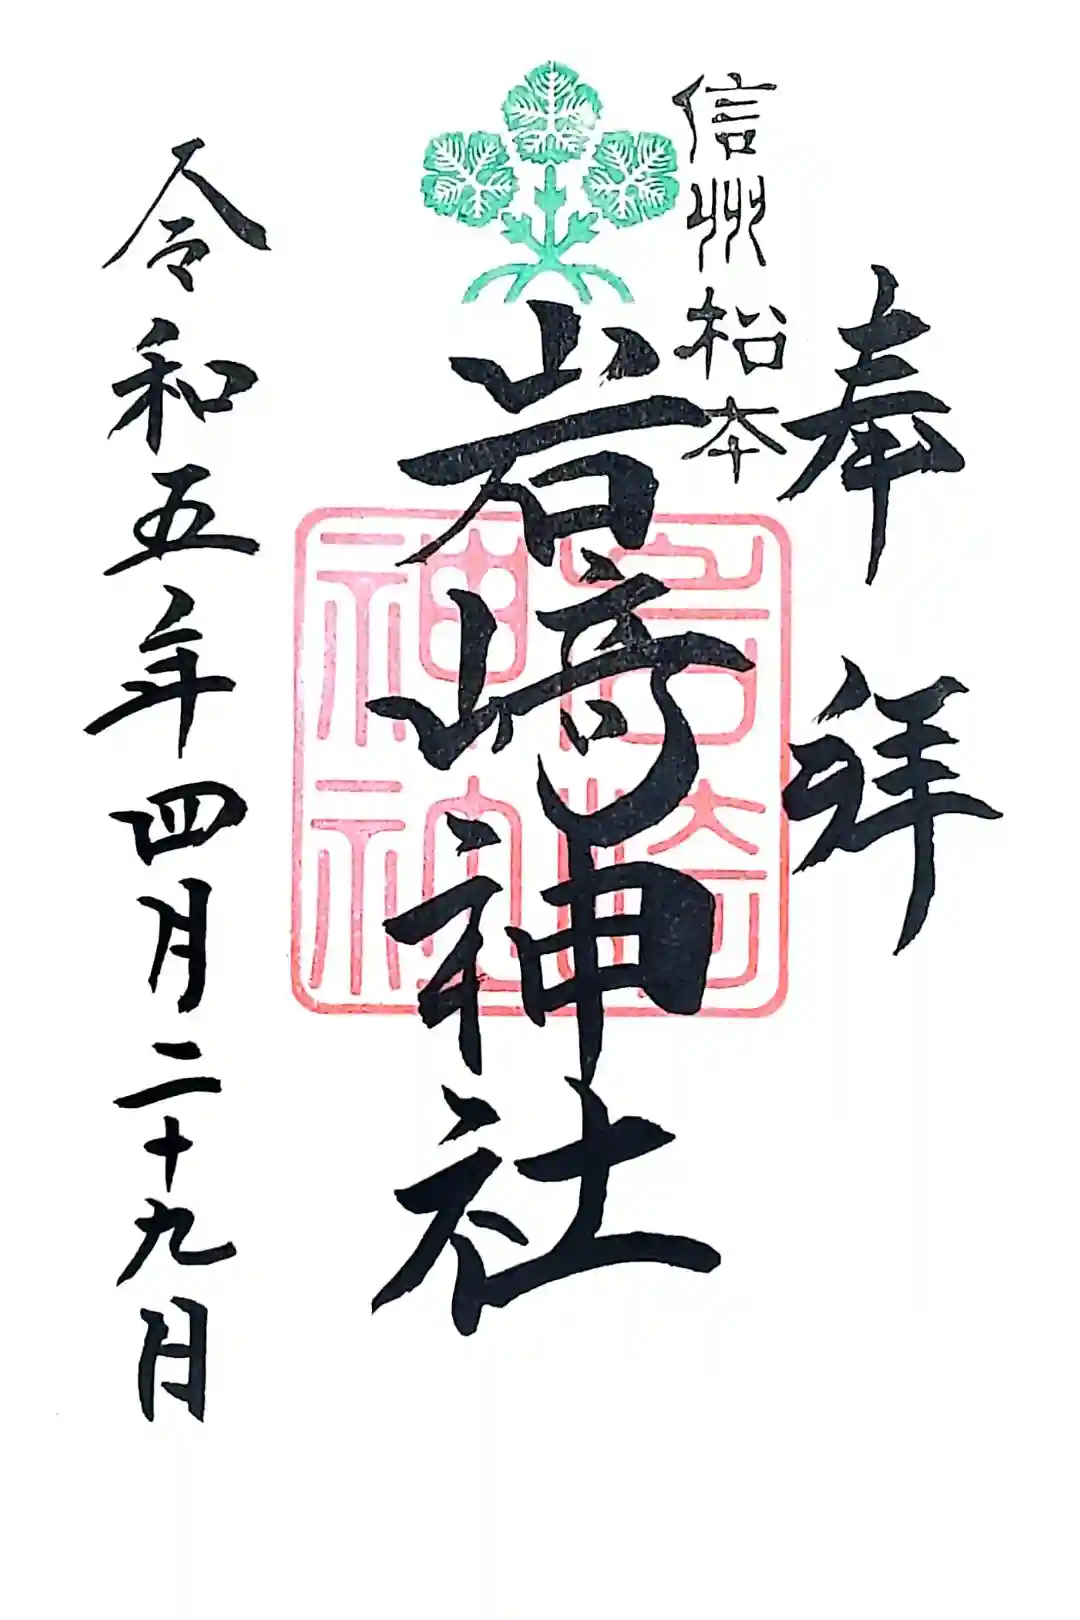 奉拝
信州松本
岩崎神社
令和五年四月二十九日